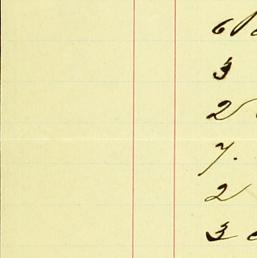 6
3
2
7.
2
3